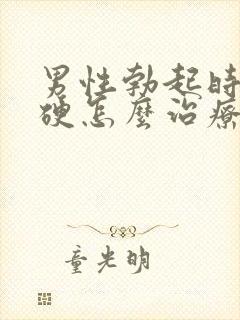 男性勃起时
硬怎麼治療
童光明